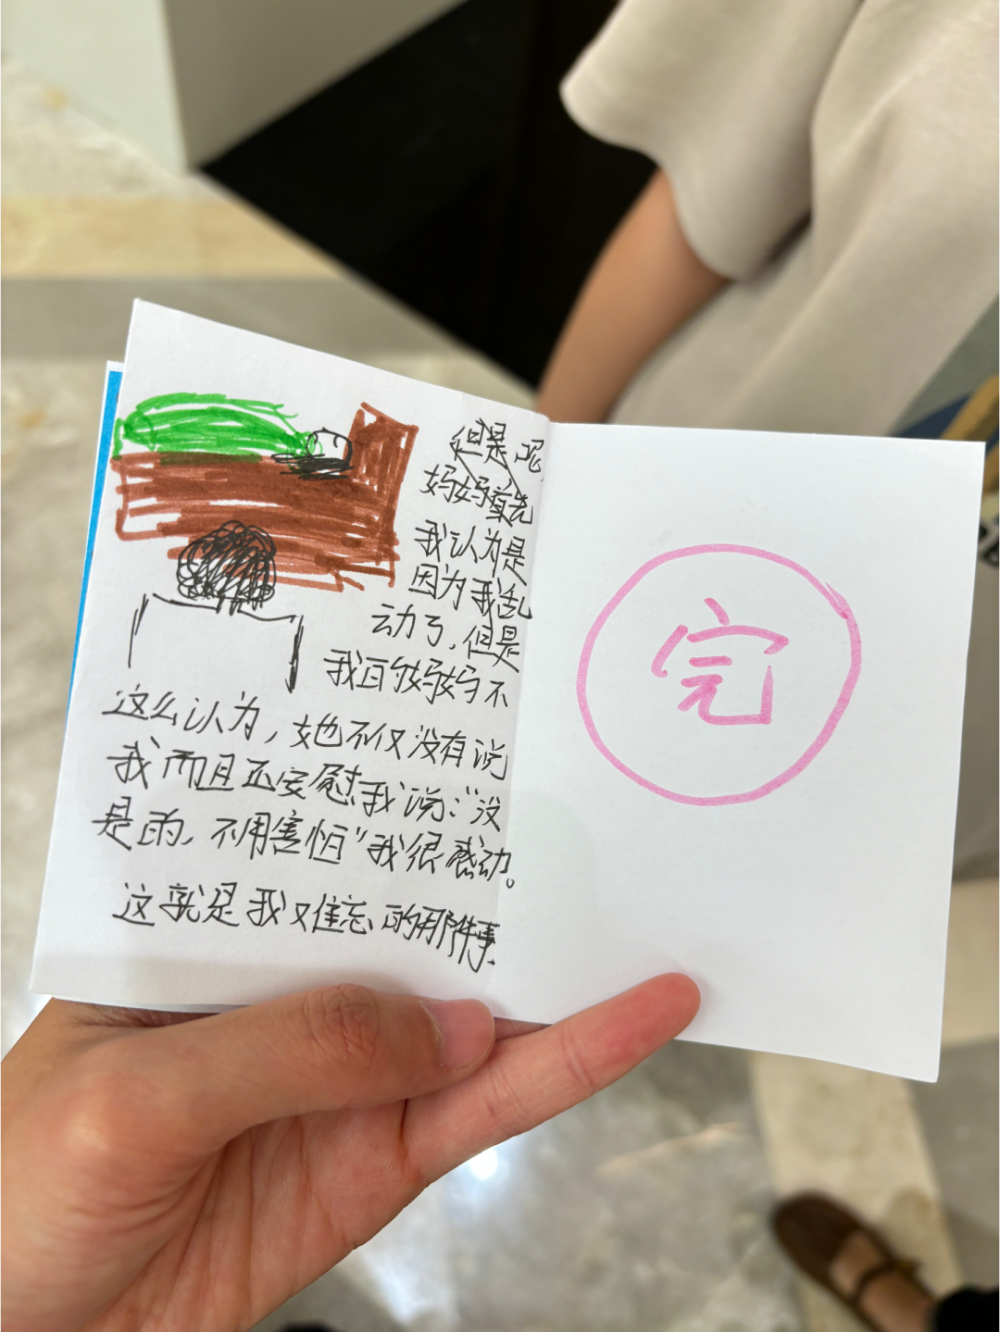 但是呢,
妈妈首先
我认为是
因为我乱
动了,但是
我的妈妈不
这么认为,她不仅没有说
我而且还安慰我说:“没
是的,不用害怕”我很感动。
这就是我又难忘的那件事.
完